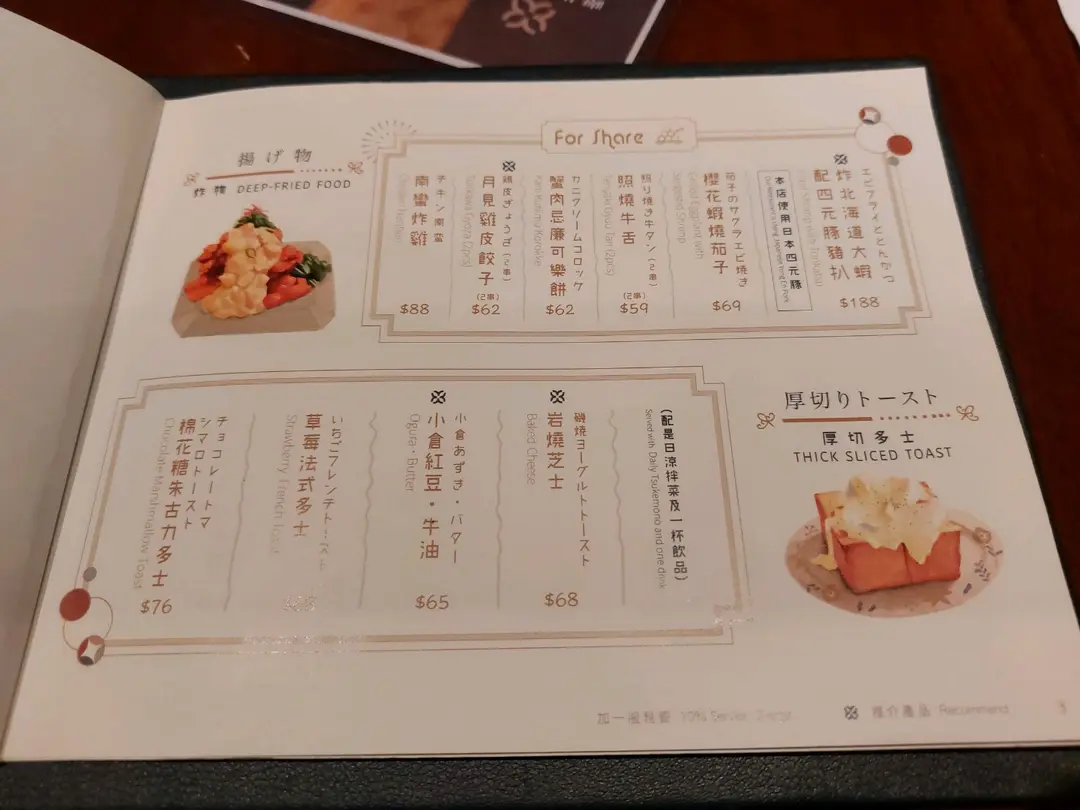 For Share
揚げ物
炸物 DEEP-FRIED FOOD
エビフライととんかつ
炸北海道大蝦
配四元豚豬扒
$188
本店使用日本四元豚
茄子のサクラエビ焼き
櫻花蝦燒茄子
$69
照り焼き牛タン(2串)
照燒牛舌
Teriyaki Gyuu Tan (2pcs)
(2串)
$59
カニクリームコロッケ
蟹肉忌廉可樂餅
Kani Kurimu Korokke
$62
鶏皮ぎょうざ(2串)
月見雞皮餃子
Torikawa Gyoza (2pcs)
(2串)
$62
チキン南蛮
南蠻炸雞
Chicken Nanban
$88
厚切りトースト
厚切多士
THICK SLICED TOAST
(配是日涼拌菜及一杯飲品)
Served with Daily Tsukemono and one drink
磯焼ヨーグルトトースト
岩燒芝士
Baked Cheese
$68
小倉あずき・バター
小倉紅豆・牛油
Ogura・Butter
$65
いちごフレンチトースト
草莓法式多士
Strawberry French Toast
チョコレートマ
シマロトースト
棉花糖朱古力多士
Chocolate Marshmallow Toast
$76
加一服務費 10% Service Charge
推介產品 Recommend